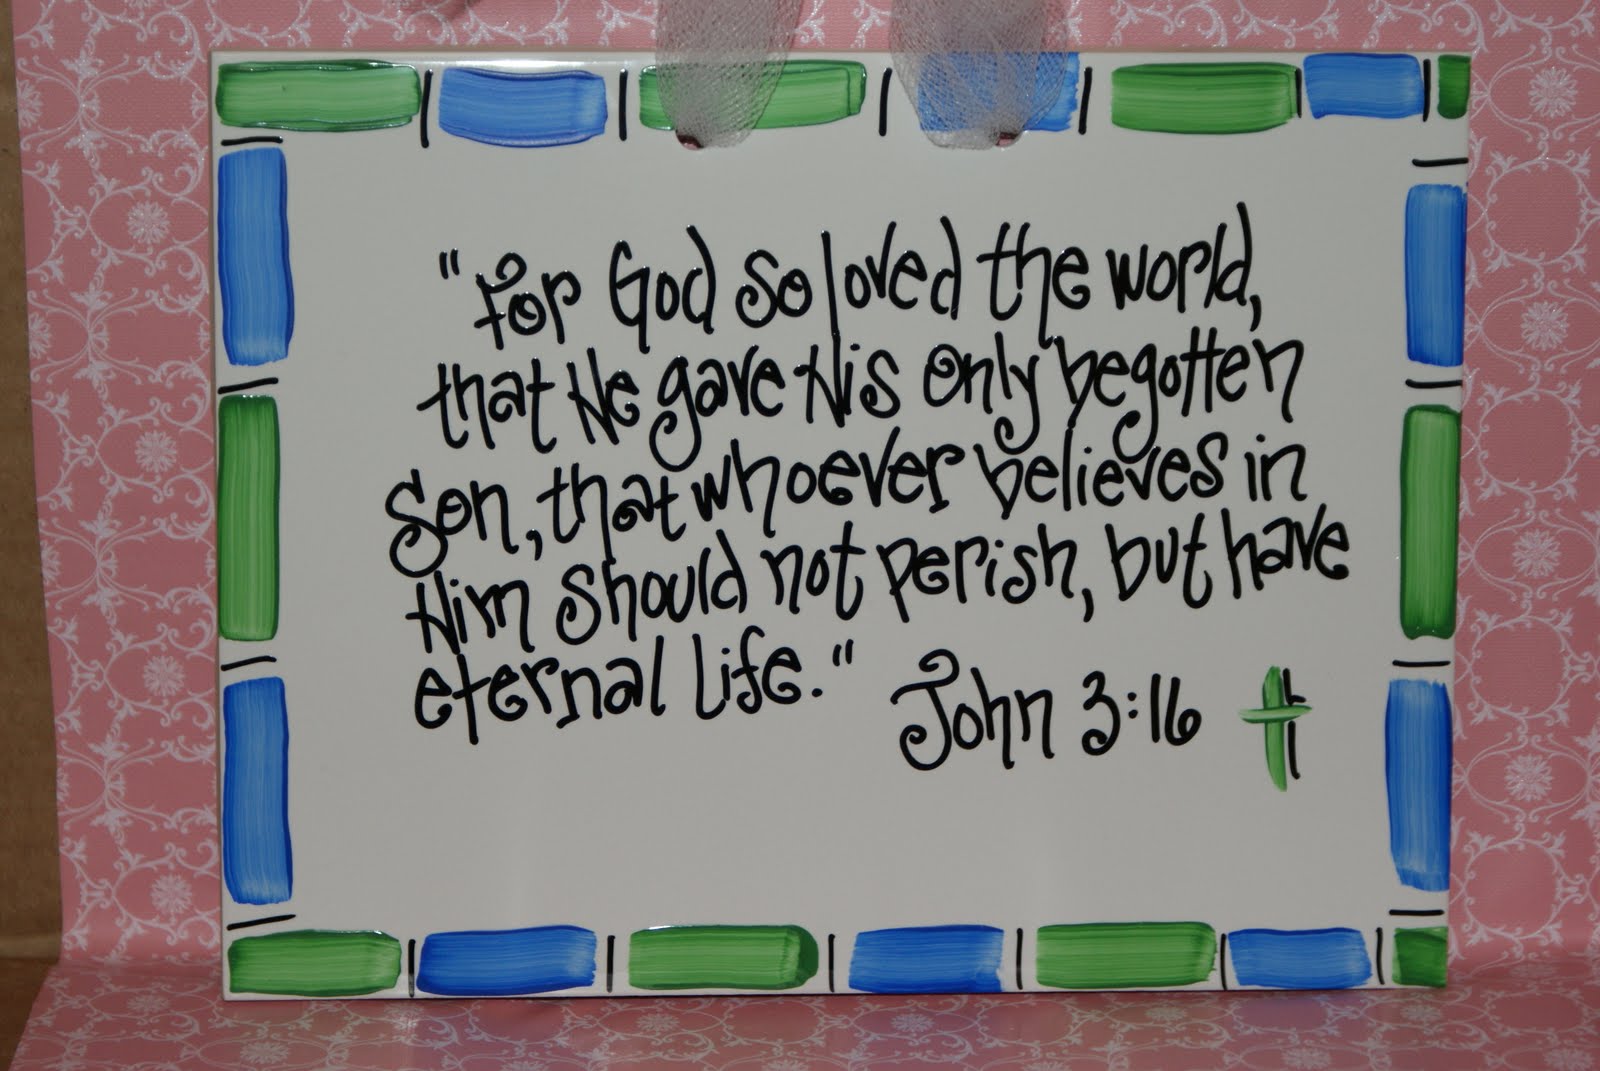 "For God so loved the world,
that He gave His only begotten
Son, that whoever believes in
Him should not perish, but have
eternal life."
John 3:16